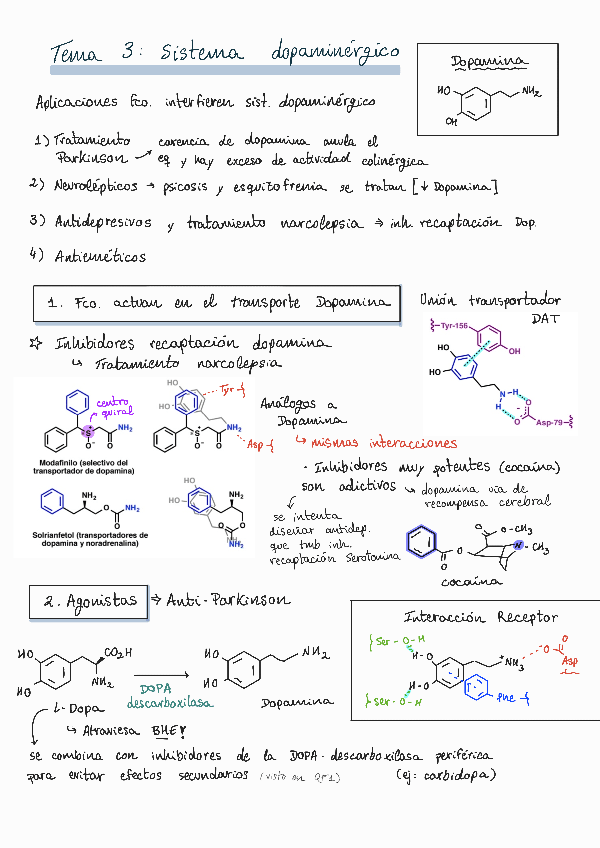 Tema 3: Sistema dopaminérgico
Dopamina
HO
NH₂
OH
Aplicaciones Fco. interfieren sist. dopaminérgico
1) Tratamiento Parkinson → carencia de dopamina anula el
eq y hay exceso de actividad colinérgica
2) Neurolépticos → psicosis y esquitofrenia se tratan [↓ Dopamina]
3) Antidepresivos y tratamiento narcolepsia ⇒ inh. recaptación Dop.
4) Antieméticos
1. Fco. actuan en el transporte Dopamina
Unión transportador
DAT
Tyr-156
OH
HO
HO
N H
H
O
O⁻
Asp-79
☆ Inhibidores recaptación dopamina
↳ Tratamiento narcolepsia
centro
quiral
S⁺
O⁻
O
NH₂
Modafinilo (selectivo del
transportador de dopamina)
HO
HO
Tyr
S⁺
O⁻
O
NH₂
Asp
Análogos a
Dopamina
↳ mismas interacciones
· Inhibidores muy potentes (cocaína)
son adictivos ↳ dopamina vía de
recompensa cerebral
se intenta
diseñar antidep.
que tmb inh.
recaptación Serotonina
NH₂
O
O
NH₂
Solrianfetol (transportadores de
dopamina y noradrenalina)
HO
HO
NH₂
O
O
NH₂
O
O-CH₃
N-CH₃
O
O
cocaína
2. Agonistas ⇒ Anti-Parkinson
HO
HO
CO₂H
NH₂
L-Dopa
DOPA
descarboxilasa
HO
HO
NH₂
Dopamina
Interacción Receptor
Ser-O-H
H-O
H-O
Ser-O-H
⁺NH₃
⁻O
O
Asp
Phe
↳ Atraviesa BHE!
se combina con inhibidores de la DOPA-descarboxilasa periférica
para evitar efectos secundarios (visto en QF1) (ej: carbidopa)